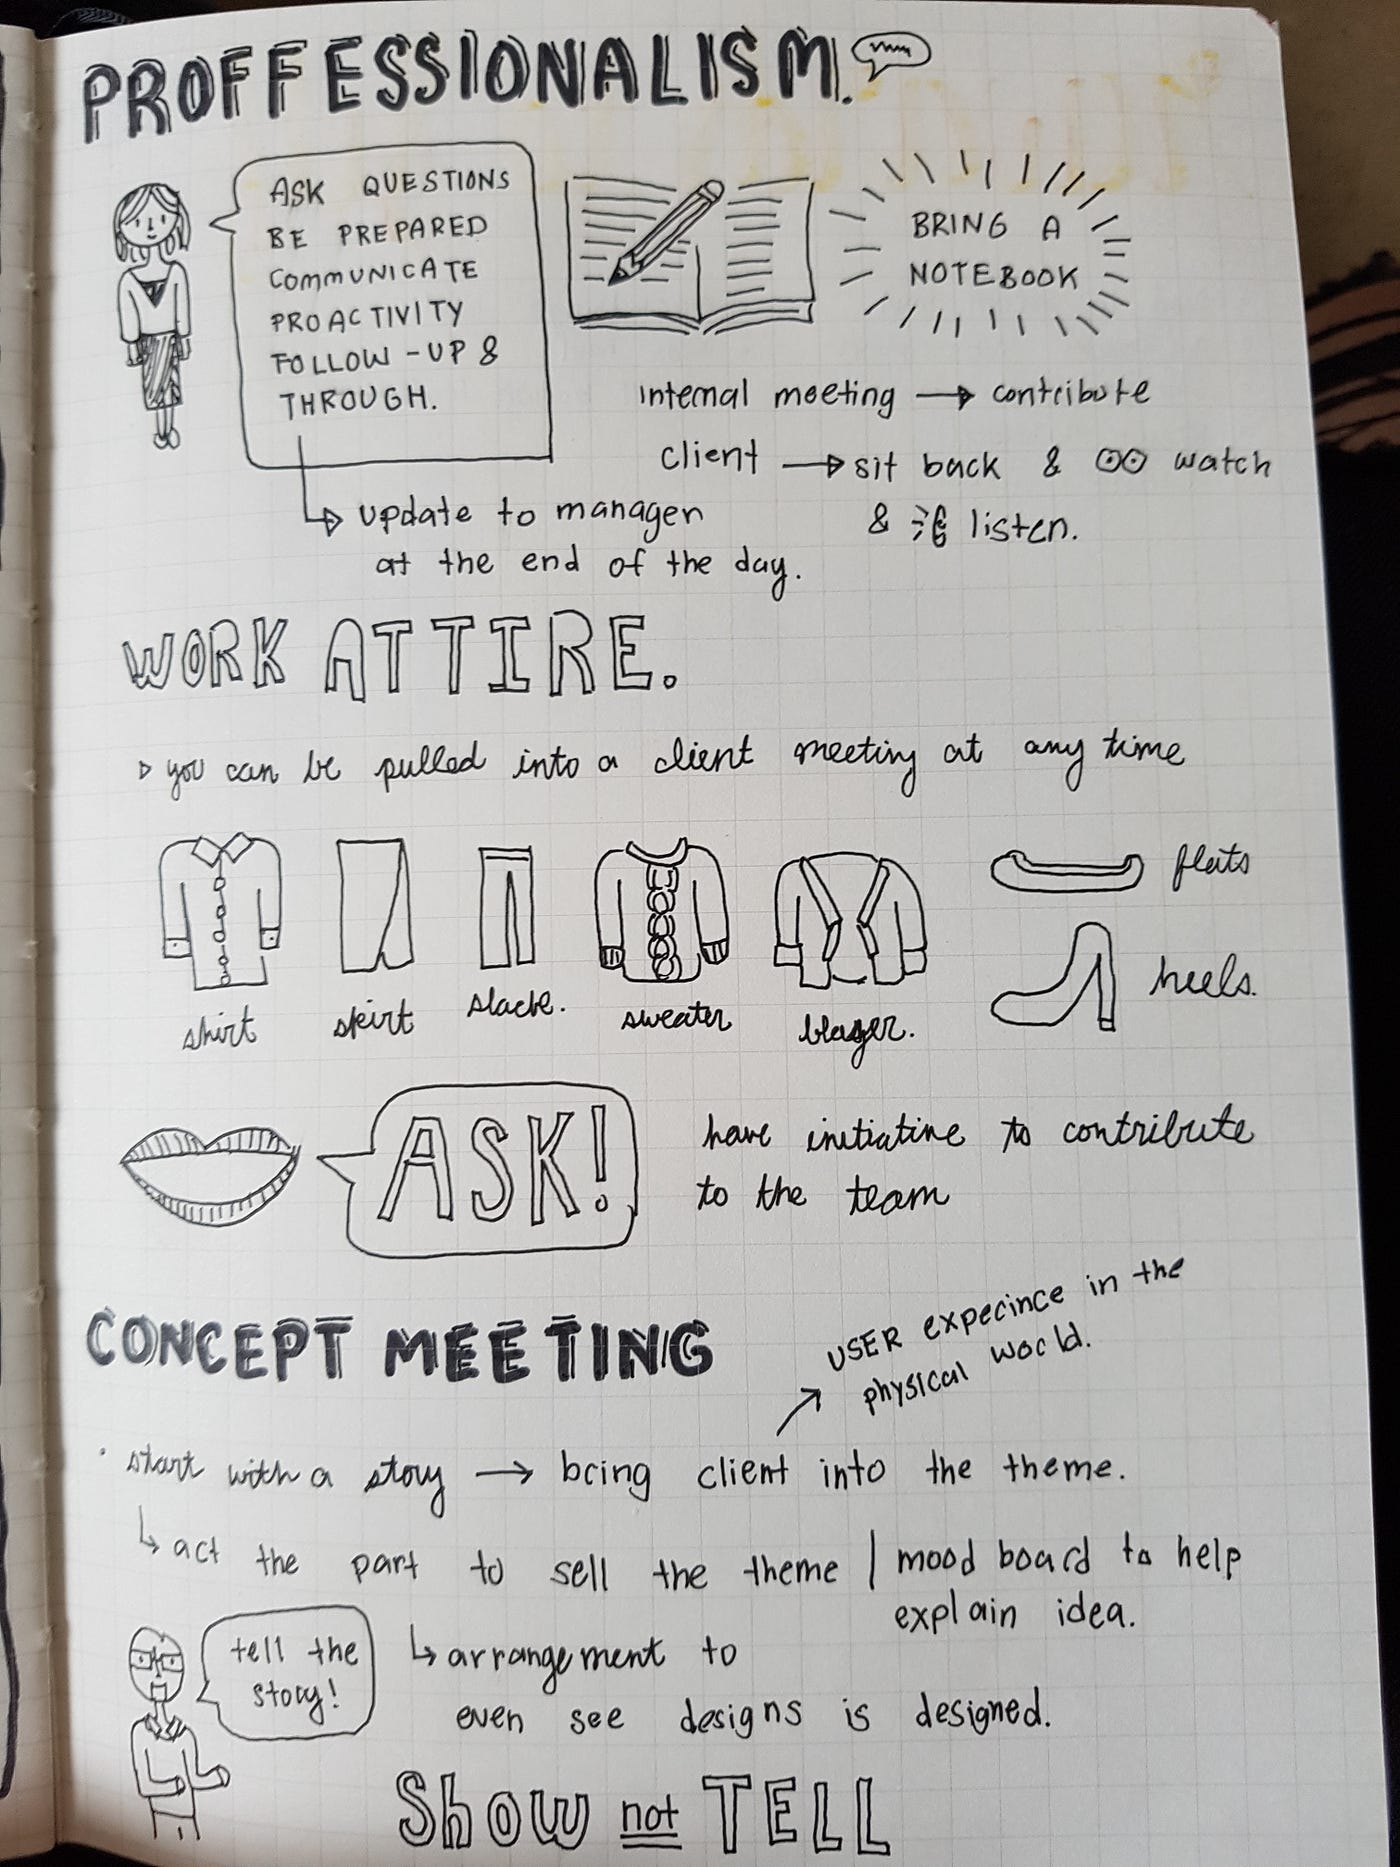 PROFFESSIONALISM.
ASK QUESTIONS
BE PREPARED
COMMUNICATE
PROACTIVITY
FOLLOW-UP &
THROUGH.
BRING A
NOTEBOOK
internal meeting → contribute
client → sit back & watch
& listen.
update to manager
at the end of the day.
WORK ATTIRE.
you can be pulled into a client meeting at any time
shirt
skirt
slack.
sweater
blazer.
flats
heels.
ASK!
have initiative to contribute
to the team
CONCEPT MEETING
USER expecince in the
physical world.
• start with a story → bring client into the theme.
↳ act the part to sell the theme | mood board to help
explain idea.
tell the
story!
↳ arrangement to
even see designs is designed.
Show not TELL